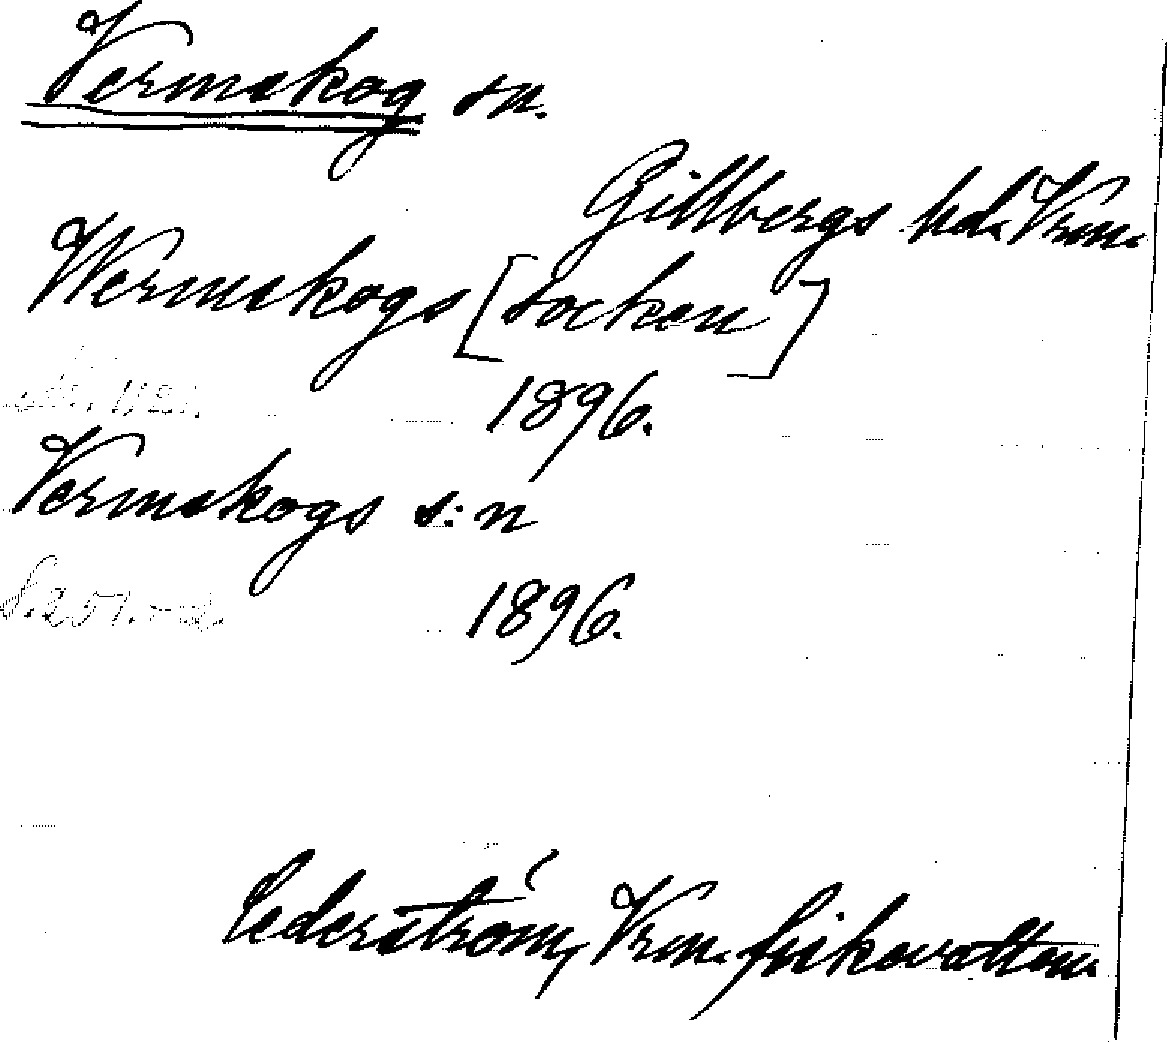 Vermskog sn.
Gillbergs hd. Vrm.
Wermskogs [socken]
1896.
Vermskogs s:n
S. 251.
1896.
Cederström, Vrm. fiskevatten.